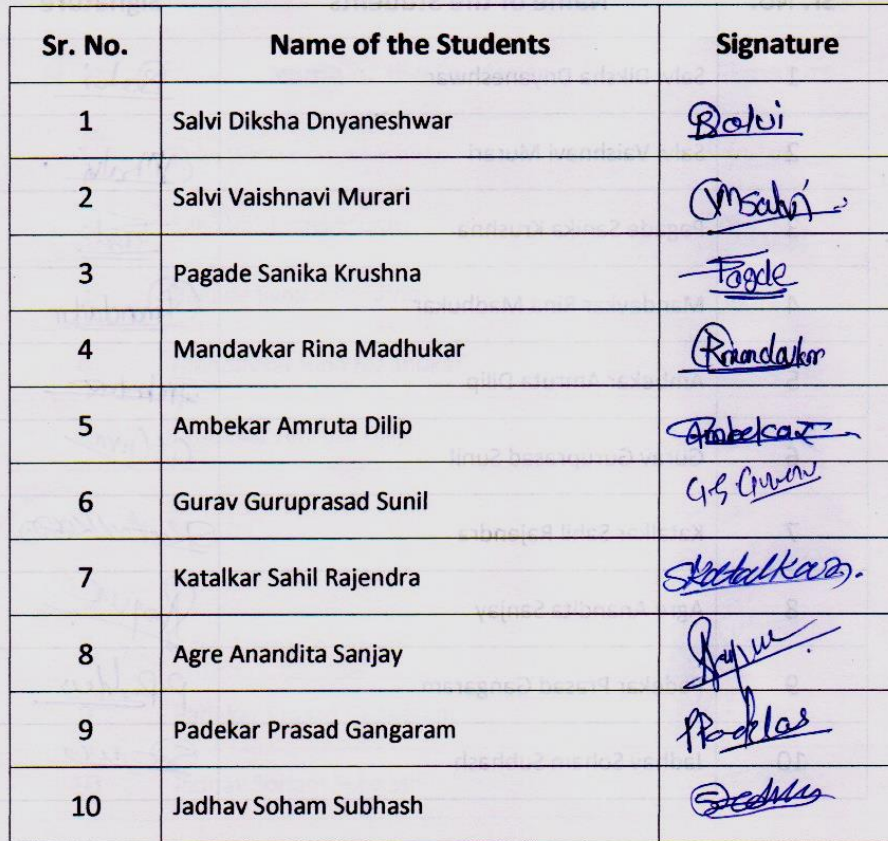 Sr. No. Name of the Students Signature
1 Salvi Diksha Dnyaneshwar
2 Salvi Vaishnavi Murari VMSalvi
3 Pagade Sanika Krushna Pagde
4 Mandavkar Rina Madhukar
5 Ambekar Amruta Dilip Ambekar
6 Gurav Guruprasad Sunil GS Gurav
7 Katalkar Sahil Rajendra SKatalkar
8 Agre Anandita Sanjay
9 Padekar Prasad Gangaram
10 Jadhav Soham Subhash